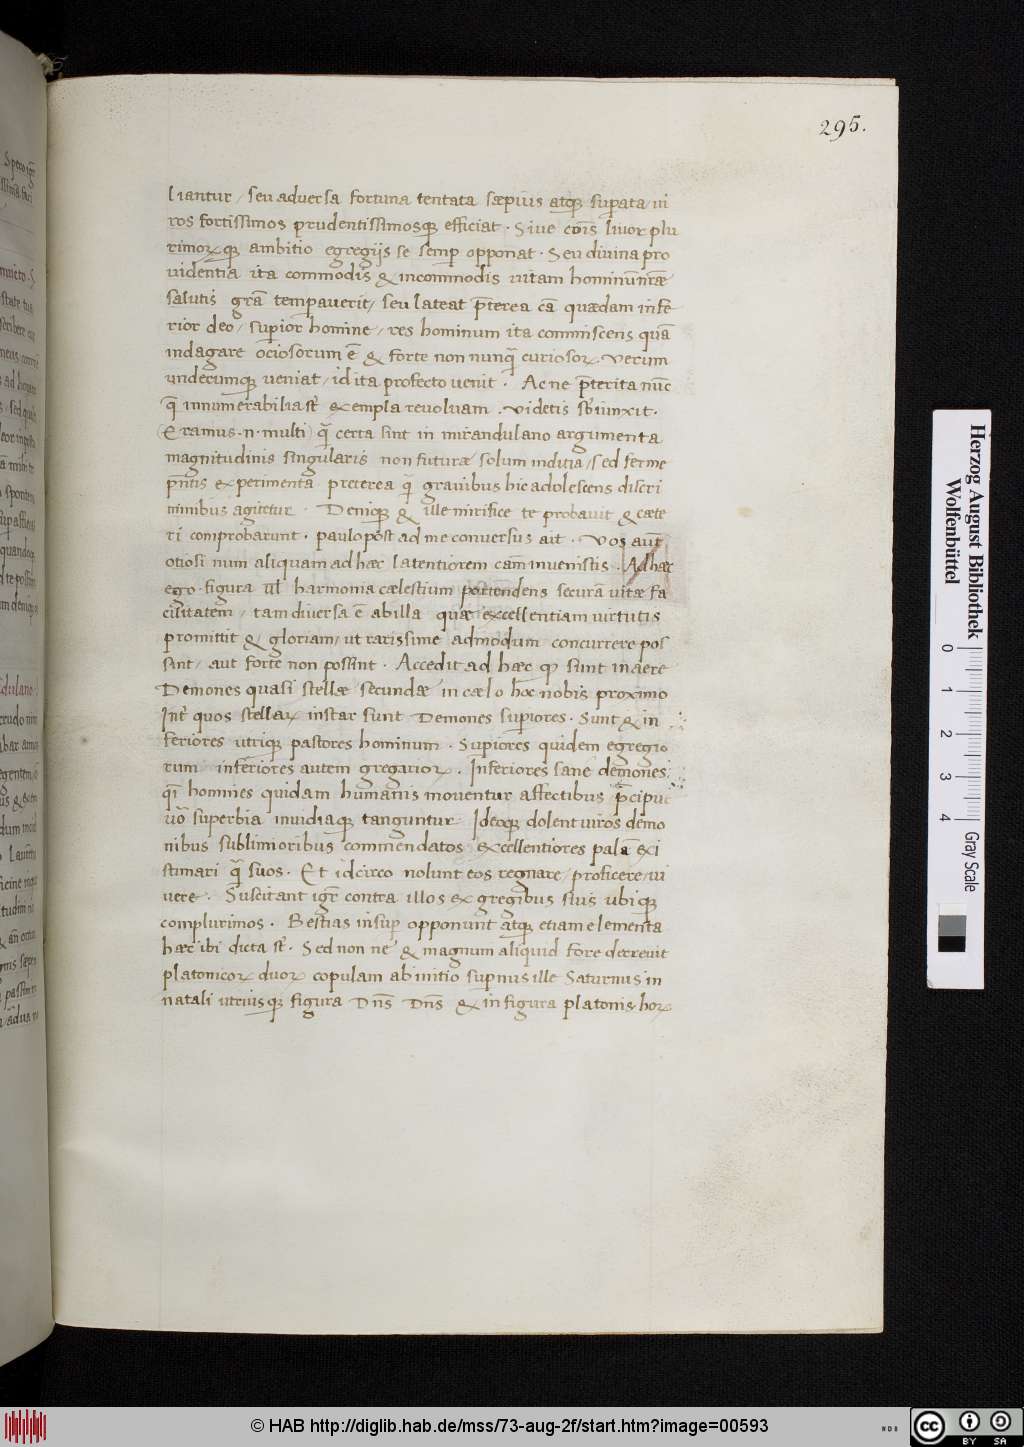 295.
liantur / seu adversa fortuna tentata sæpius atq; sup̱ata ui
ros fortissimos prudentissimosq; efficiat · Sive cōis livor plu
rimoꝝq; ambitio egregijs se semp̱ opponat · Seu divina pro
videntia ita commodis & incommodis vitam hominum n̄ræ
salutis grā temp̱averit / seu lateat p̄terea cā quædam infe
rior deo / sup̱ior homine / res hominum ita comminscens quā
indagare ociosorum ē & forte non nunq̄ curiosoꝝ · Verum
undecumq; veniat / id ita profecto venit · Ac ne p̄terita nūc
q̄ innumerabilia st̄ exempla revoluam · Videtis sb̄iunxit ·
(Eramus · n · multi) q̄ certa sint in mirandulano argumenta
magnitudinis singularis non futuræ solum indicia / sed ferme
pn̄tis experimenta preterea q̄ gravibus hic adolescens discri
minibus agitetur · Deniq; & ille mirifice te probavit & cæte
ri comprobarunt · paulo post ad me conversus ait · Vos aut̄
otiosi num aliquam ad hæc latentiorem cām invenistis · Ad hæc
ego · figura ul̄ harmonia cælestium portendens securā vitæ fa
cilitatem / tam diversa ē ab illa quæ excellentiam virtutis
promittit & gloriam / ut rarissime admodum concurrere pos
sint / aut forte non possint · Accedit ad hæc qɔ sunt in aere
Demones quasi stellæ secundæ in cælo hoc nobis proximo
Int̄ quos stellaꝝ instar sunt Demones sup̱iores · Sunt & in
feriores utriq; pastores hominum · Sup̱iores quidem egregio
rum inferiores autem gregarioꝝ · Inferiores sane demones
qī homines quidam humanis moventur affectibus p̄cipue
vō superbia invidiaq; tanguntur Ideoq; dolent viros demo
nibus sublimioribus commendatos excellentiores palā exi
stimari q̄ suos · Et idcirco nolunt eos regnare / proficere / vi
vere · Suscitant igr̄ contra illos ex gregibus suis ubiq;
complurimos · Bestias insup̱ opponunt atq; etiam elementa
hæc ibi dicta st̄ · Sed non ne & magnum aliquid fore decrevit
platonicoꝝ duoꝝ copulam ab initio sup̱nus ille Saturnus in
natali utriusq; figura Dn̄s Dn̄s & in figura platonis hoꝝ
Herzog August Bibliothek
Wolfenbüttel
0 1 2 3 4
Gray Scale
© HAB http://diglib.hab.de/mss/73-aug-2f/start.htm?image=00593
cc BY SA